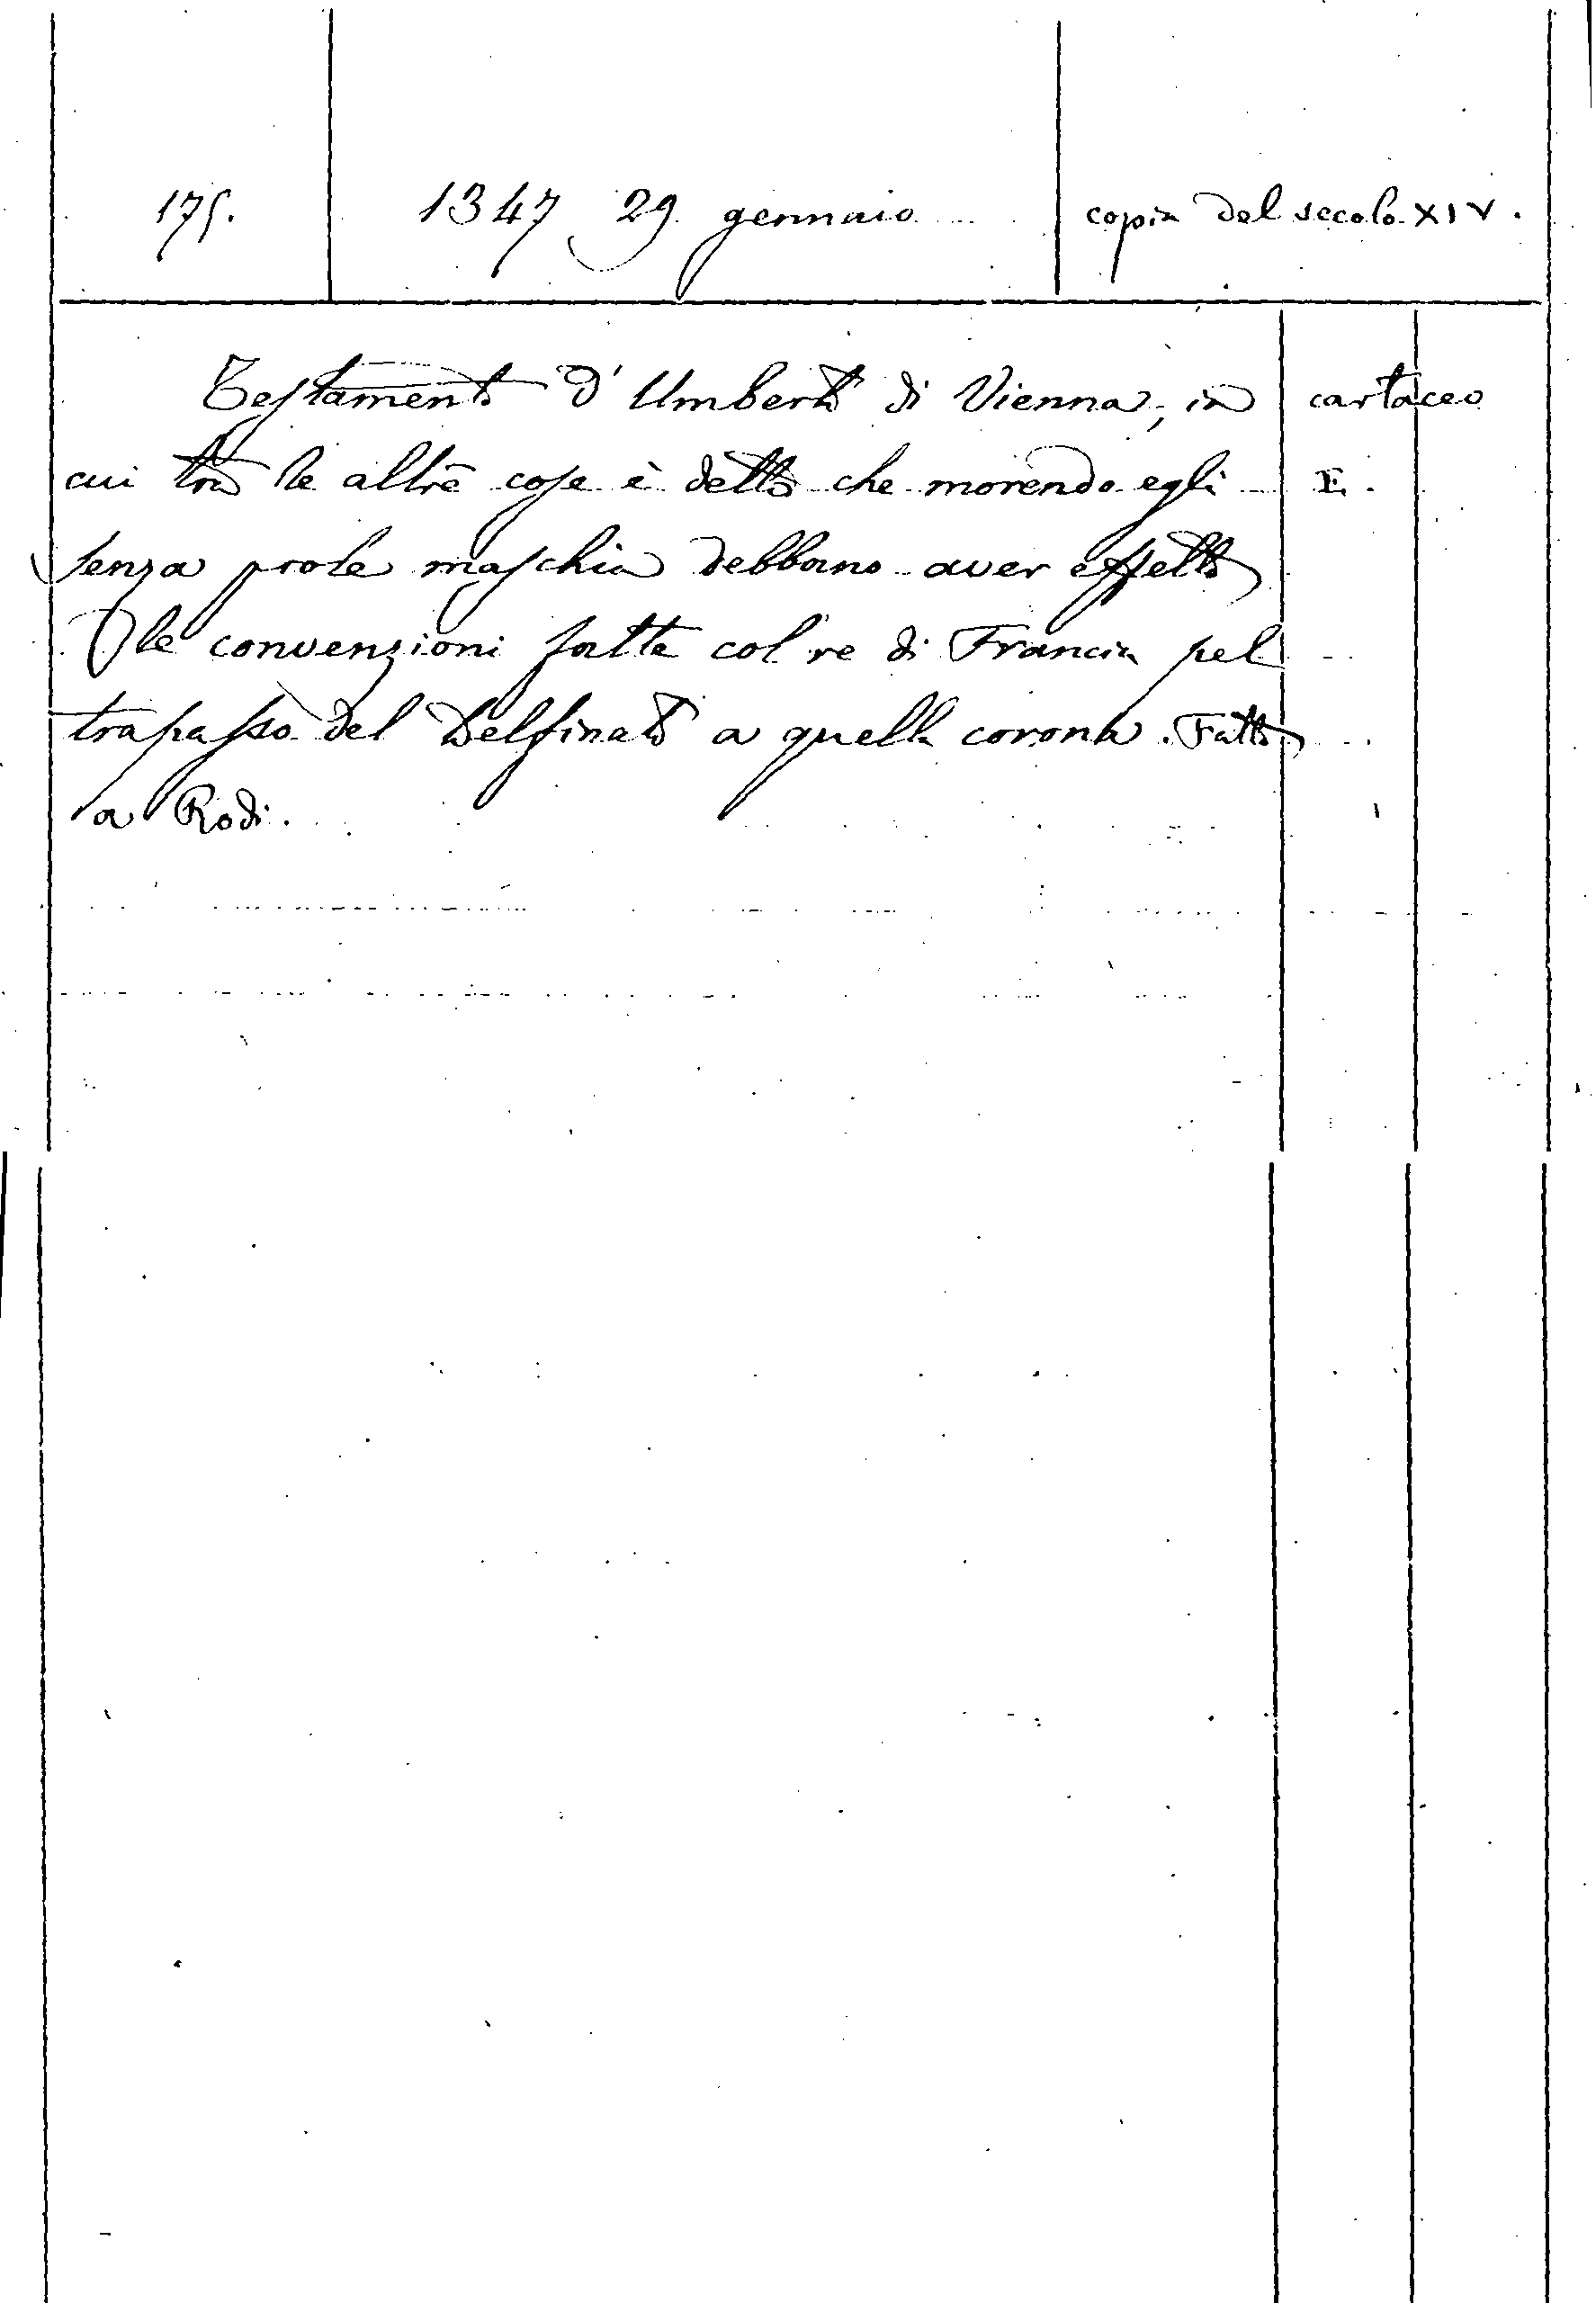 175. 1347 29 gennaio copia del secolo XIV.
Testamento d'Umberto di Vienna, in cartaceo
cui tra le altre cose è detto che morendo egli E.
senza prole maschia debbano aver effetto
le convenzioni fatte col re di Francia pel
trapasso del Delfinato a quella corona. Fatto
a Rodi.